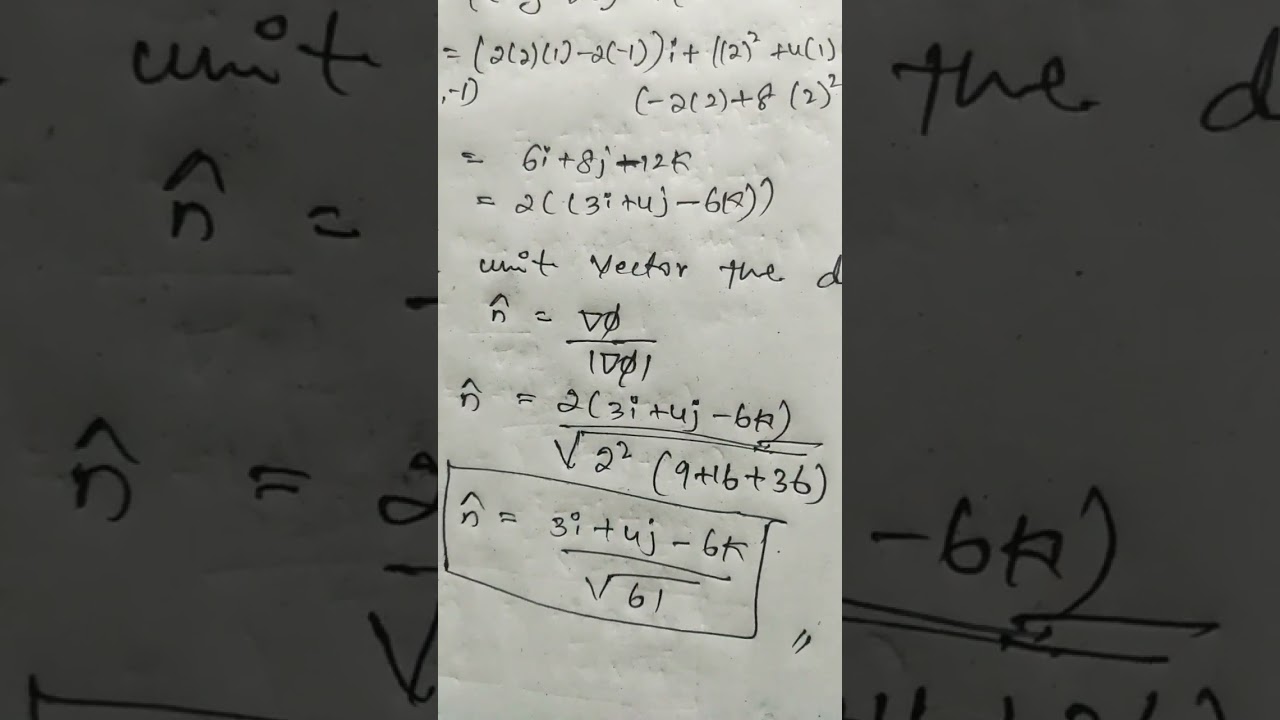 = (2(2)(1)-2(-1))i + ((2)² + 4(1)
,-1) (-2(2)+8 (2)²
= 6i+8j-12k
= 2((3i+4j-6k))
unit vector the d
n̂ = ∇φ
|∇φ|
n̂ = 2(3i+4j-6k)
√2² (9+16+36)
n̂ = 3i+4j-6k
√61